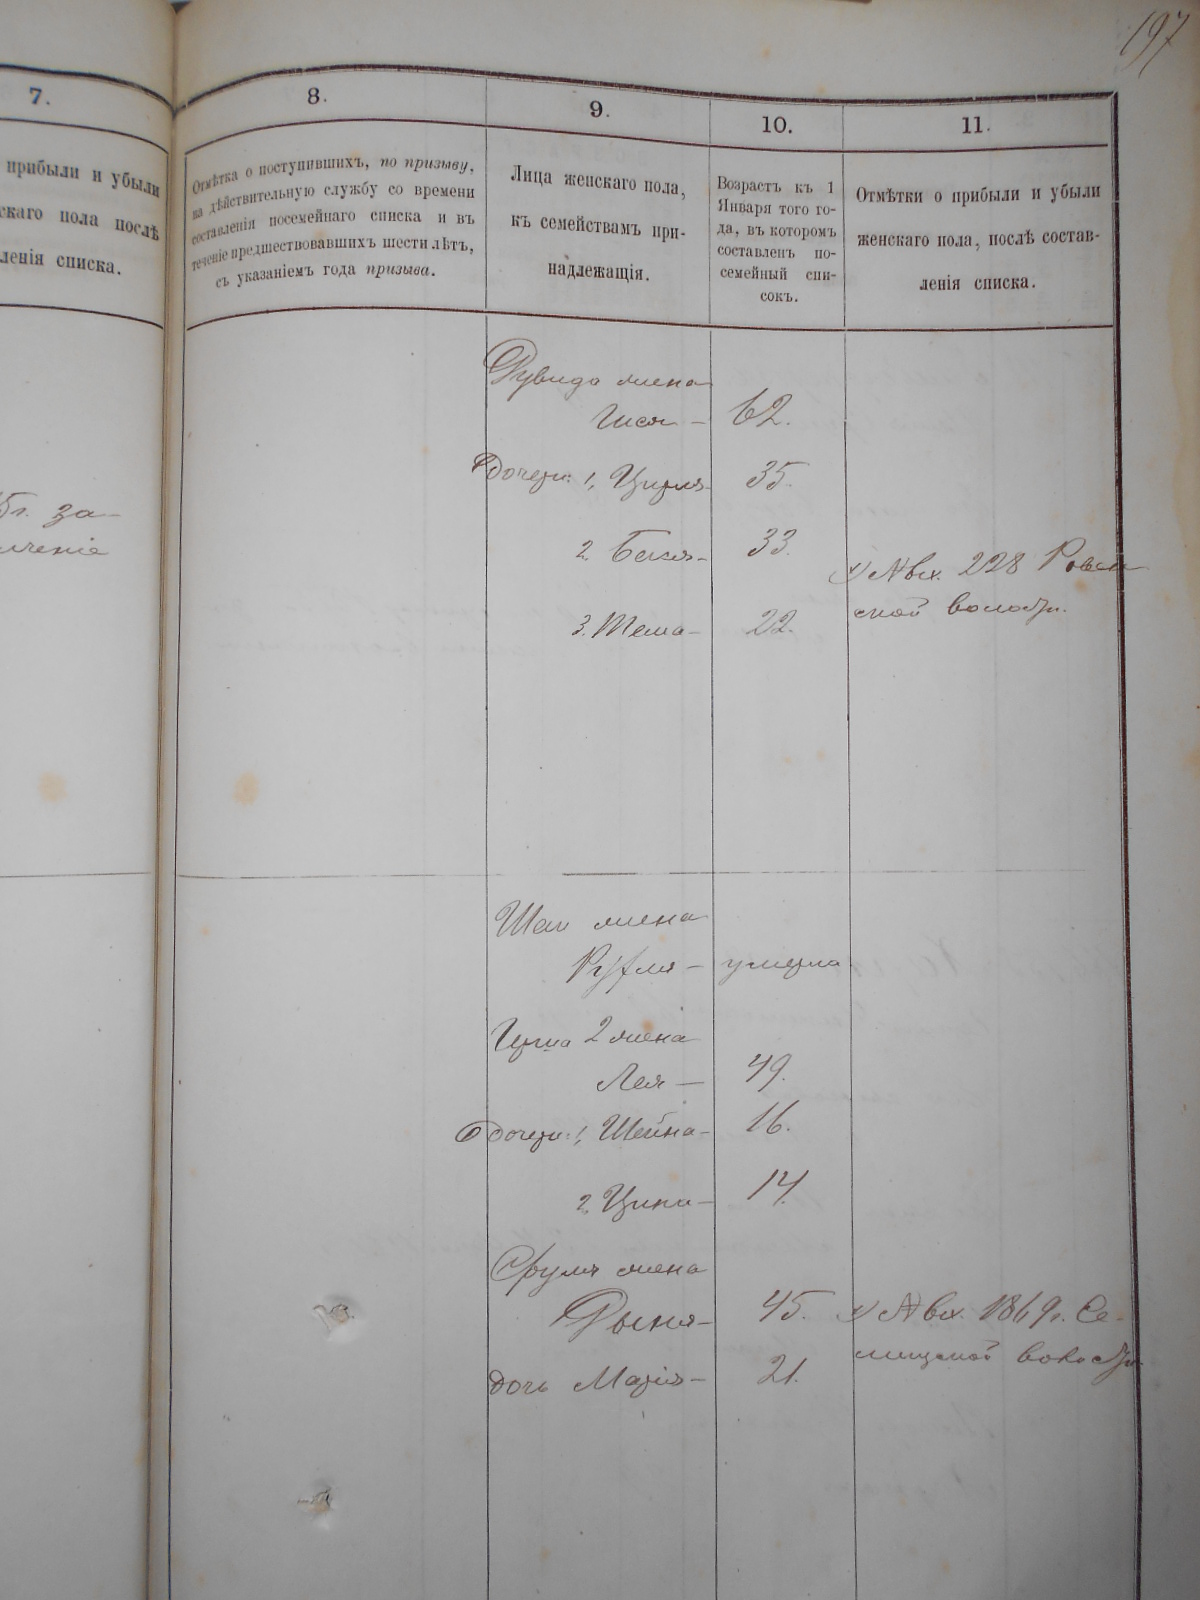 197
7.
прибыли и убыли
скаго пола послѣ
ленія списка.
5г. за-
ченіе
8.
Отмѣтка о поступившихъ, по призыву,
на дѣйствительную службу со времени
составленія посемейнаго списка и въ
теченіе предшествовавшихъ шести лѣтъ,
съ указаніемъ года призыва.
9.
Лица женскаго пола,
къ семействамъ при-
надлежащія.
10.
Возрастъ къ 1
Января того го-
да, въ которомъ
составленъ по-
семейный спи-
сокъ.
11.
Отмѣтки о прибыли и убыли
женскаго пола, послѣ состав-
ленія списка.
Рувида жена
62.
Дочери: 1, Цирля 35.
2. Бася- 33.
3. Тема- 22.
х) № вх. 228 Ровен
ской волости.
Шеи жена
Рухля- умерла
2 жена
Лея — 49.
Дочери: 1, Шейна- 16.
2.Ципа- 14.
Сруля жена
45.
дочь Марія- 21.
х) № вх. 1869г. Се-
лищской волости.